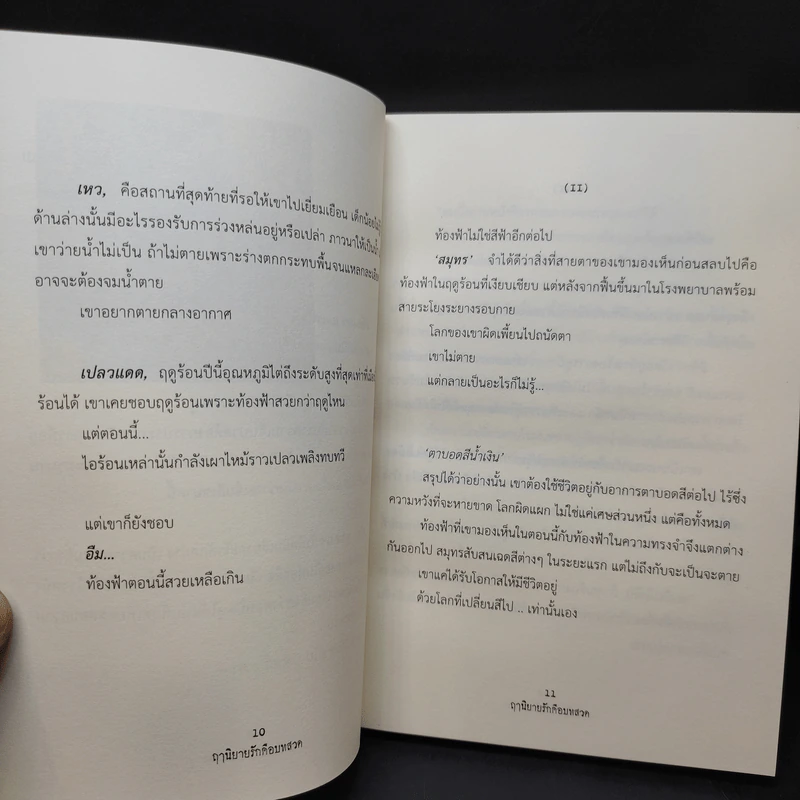 เหว, คือสถานที่สุดท้ายที่รอให้เขาไปเยี่ยมเยือน เด็กน้อย
ด้านล่างนั้นมีอะไรรองรับการร่วงหล่นอยู่หรือเปล่า ภาวนาให้เป็น
เขาว่ายน้ำไม่เป็น ถ้าไม่ตายเพราะร่างตกกระทบพื้นจนแหลกละเอียด
อาจจะต้องจมน้ำตาย
เขาอยากตายกลางอากาศ
เปลวแดด, ฤดูร้อนปีนี้อุณหภูมิไต่ถึงระดับสูงที่สุดเท่าที่
ร้อนได้ เขาเคยชอบฤดูร้อนเพราะท้องฟ้าสวยกว่าฤดูไหน
แต่ตอนนี้...
ไอร้อนเหล่านั้นกำลังเผาไหม้ราวเปลวเพลิงทบทวี
แต่เขาก็ยังชอบ
อืม...
ท้องฟ้าตอนนี้สวยเหลือเกิน
10
ฤๅนิยายรักคือบทสวด
(II)
ท้องฟ้าไม่ใช่สีฟ้าอีกต่อไป
‘สมุทร’ จำได้ดีว่าสิ่งที่สายตาของเขามองเห็นก่อนสลบไปคือ
ท้องฟ้าในฤดูร้อนที่เงียบเชียบ แต่หลังจากฟื้นขึ้นมาในโรงพยาบาลพร้อม
สายระโยงระยางรอบกาย
โลกของเขาผิดเพี้ยนไปถนัดตา
เขาไม่ตาย
แต่กลายเป็นอะไรก็ไม่รู้...
‘ตาบอดสีน้ำเงิน’
สรุปได้ว่าอย่างนั้น เขาต้องใช้ชีวิตอยู่กับอาการตาบอดสีต่อไป ไร้ซึ่ง
ความหวังที่จะหายขาด โลกผิดแผก ไม่ใช่แค่เศษส่วนหนึ่ง แต่คือทั้งหมด
ท้องฟ้าที่เขามองเห็นในตอนนี้กับท้องฟ้าในความทรงจำจึงแตกต่าง
กันออกไป สมุทรสับสนเฉดสีต่างๆ ในระยะแรก แต่ไม่ถึงกับจะเป็นจะตาย
เขาแค่ได้รับโอกาสให้มีชีวิตอยู่
ด้วยโลกที่เปลี่ยนสีไป .. เท่านั้นเอง
11
ฤๅนิยายรักคือบทสวด